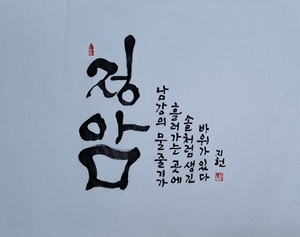 정암
남강의 물줄기가
흘러가는 곳에
솥처럼 생긴
바위가 있다